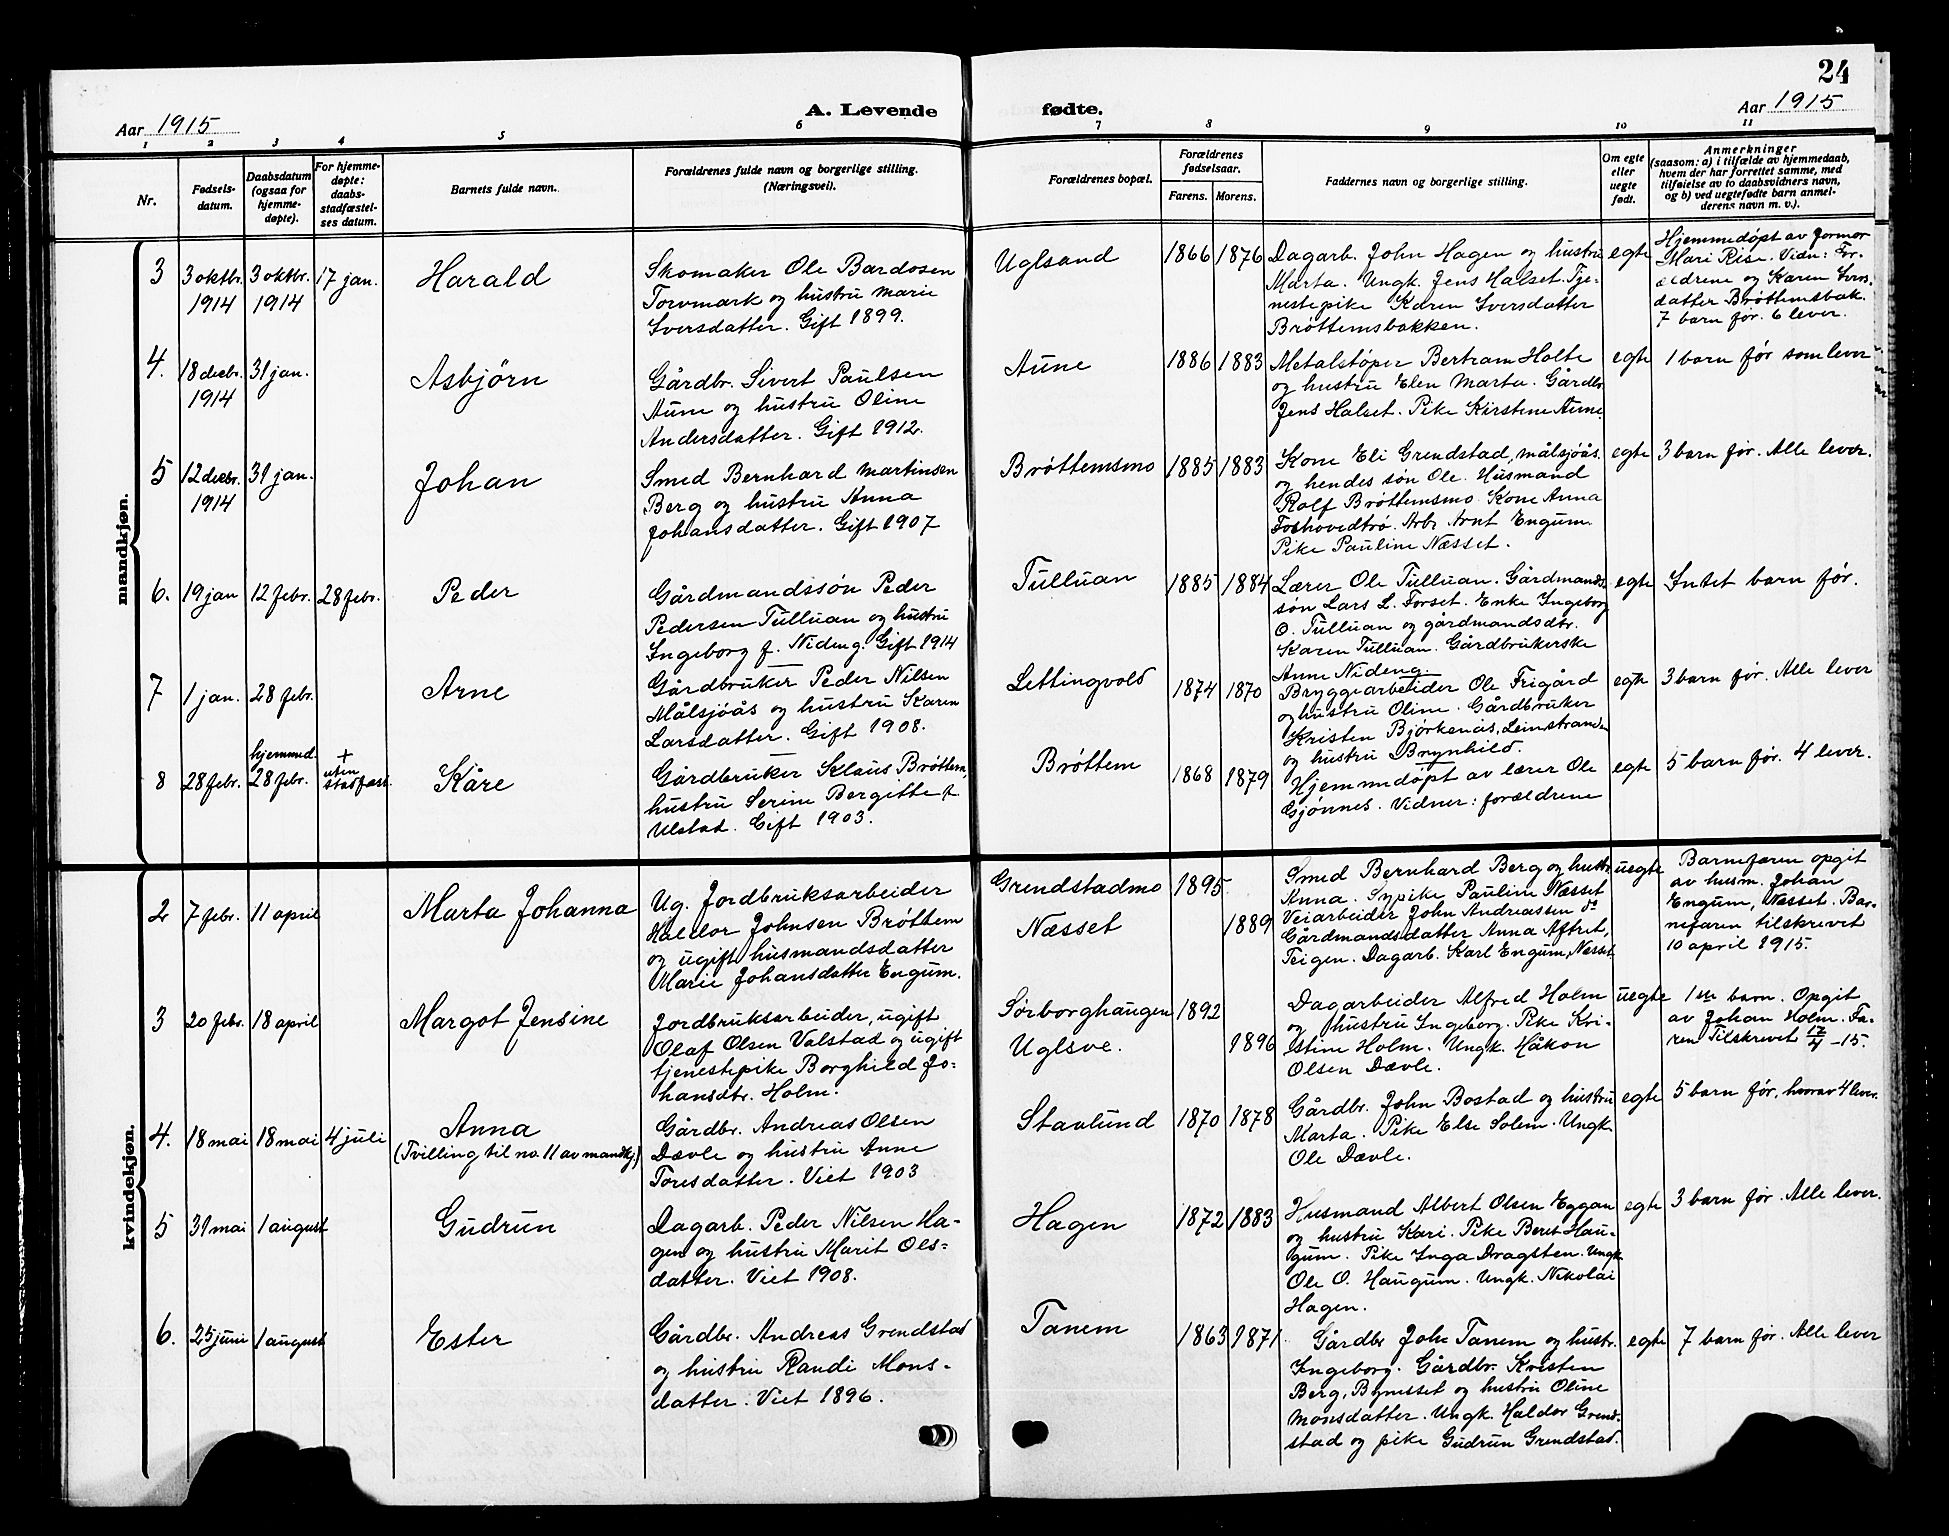 24
Aar 1915
A. Levende
fødte.
Aar 1915
1 2 3 4 5 6 7 8 9 10 11
Nr.
Fødsels-
datum.
Daabsdatum
(ogsaa for
hjemme-
døpte).
For hjemme-
døpte:
daabs-
stadfæstel-
ses datum.
Barnets fulde navn.
Forældrenes fulde navn og borgerlige stilling.
(Næringsvei).
Forældrenes bopæl.
Forældrenes
fødselsaar.
Farens. Morens.
Faddernes navn og borgerlige stilling.
Om egte
eller
uegte
født.
Anmerkninger
(saasom: a) i tilfælde av hjemmedaab,
hvem der har forrettet samme, med
tilføielse av to daabsvidners navn,
og b) ved uegtefødte barn anmel-
derens navn m. v.).
mandkjøn.
3
3 oktbr.
1914
3 oktbr.
1914
17 jan.
Harald
Skomaker Ole Bardosen
Torvmark og hustru Marie
Iversdatter. Gift 1899.
Uglsand
1866 1876
Dagarb. John Hagen og hustru
Marta. Ungk. Jens Halset. Tje-
nestepike Karen Iversdatter
Brøttemsbakken.
egte
Hjemmedøpt av formor
Mari Rise. Vidn: For-
ældrene og Karen Ivers-
datter Brøttemsbak.
7 barn før. 6 lever.
4.
18 decbr.
1914
31 jan.
Asbjørn
Gårdbr. Sivert Paulsen
Aune og hustru Oline
Andersdatter. Gift 1912.
Aune
1886 1883
Metalstøper Bertram Holte
og hustru Elen Marta. Gårdbr.
Jens Halset. Pike Kirstene Aune.
egte
1 barn før som lever
5
12 decbr.
1914
31 jan.
Johan
Smed Bernhard Martinsen
Berg og hustru Anna
Johansdatter. Gift 1907
Brøttemsmo
1885 1883
Kone Eli Grendstad, målsjøås
og hendes søn Ole. Husmand
Rolf Brøttemsmo. Kone Anna
Foshovedtrø. Arb. Arnt Engum.
Pike Pauline Næsset.
egte
3 barn før. Alle lever.
6.
19 jan
12 febr.
28 febr.
Peder
Gårdmandssøn Peder
Pedersen Tulluan og hustru
Ingeborg f. Nideng. Gift 1914
Tulluan
1885 1884
Lærer Ole Tulluan. Gårdmands-
søn Lars L. Forset. Enke Ingeborg
O. Tulluan og gårdmandsdtr.
Karen Tulluan. Gårdbrukerske
Anne Nideng.
egte
Intet barn før.
7
1 jan.
28 febr.
Arne
Gårdbruker Peder Nilsen
Målsjøås og hustru Karen
Larsdatter. Gift 1908.
Lettingvold
1874 1870
Bryggearbeider Ole Frigård
og hustru Oline. Gårdbruker
Kristen Bjørkenås, Leinstranden
og hustru Brynhild.
egte
3 barn før. Alle lever
8
28 febr.
hjemmed.
28 febr.
+
uten
stadfæst.
Kåre
Gårdbruker Klaus Brøttem,
hustru Serine Bergette f.
Ulstad. Gift 1903.
Brøttem
1868 1879
Hjemmedøpt av lærer Ole
Gjønnes. Vidner: forældrene
egte
5 barn før. 4 lever.
kvindekjøn.
2
7 febr.
11 april
Marta Johanna
Ug. Jordbruksarbeider
Haldor Johnsen Brøttem
og ugift husmandsdatter
Marie Johansdatter Engum.
Grendstadmo
Næsset
1895
1889
Smed Bernhard Berg og hustru
Anna. Sypike Pauline Næsset
Veiarbeider John Andreassen do
Gårdmandsdatter Anna Aftret,
Teigen. Dagarb. Karl Engum, Næsset
uegte
Barnefaren opgit
av husm. Johan
Engum, Næsset. Bar-
nefaren tilskrevet
10 april 1915.
3
20 febr.
18 april
Margot Jensine
Jordbruksarbeider, ugift
Olaf Olsen Valstad og ugift
tjenestepike Borghild Jo-
hansdtr. Holm.
Sørborghaugen
Uglsve.
1892
1896
Dagarbeider Alfred Holm
og hustru Ingeborg. Pike Kri-
stine Holm. Ungk. Håkon
Olsen Dævle.
uegte
1ste barn. Opgit
av Johan Holm. Fa-
ren Tilskrevet 12/4 -15.
4.
18 mai
18 mai
4 juli
Anna
(Tvilling til no. 11 av mandkj.)
Gårdbr. Andreas Olsen
Dævle og hustru Anne
Toresdatter. Viet 1903
Stavlund
1870 1878
Gårdbr. John Bostad og hustru
Marta. Pike Else Solem. Ungk.
Ole Dævle.
egte
5 barn før, hvorav 4 lever.
5
31 mai
1 august
Gudrun
Dagarb. Peder Nilsen Ha-
gen og hustru Marit Ols-
datter. Viet 1908.
Hagen
1872 1883
Husmand Albert Olsen Eggan
og hustru Kari. Pike Beret Hau-
gum. Pike Inga Dragsten. Ungk.
Ole O. Haugum. Ungk. Nikolai
Hagen.
egte
3 barn før. Alle lever.
6.
25 juni
1 august
Ester
Gårdbr. Andreas Grendstad
og hustru Randi Mons-
datter. Viet 1896.
Tanem
1863 1871
Gårdbr John Tanem og hustr.
Ingeborg. Gårdbr. Kristen
Berg, Bynesset og hustru Oline
Monsdatter. Ungk. Haldor Grend-
stad og pike Gudrun Grendstad.
egte
7 barn før. Alle lever